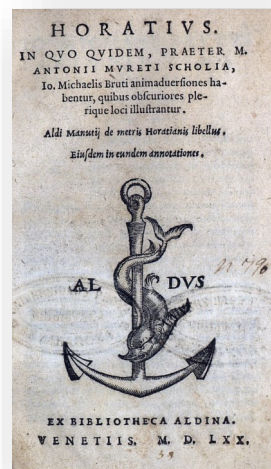 HORATIVS.
IN QVO QVIDEM, PRAETER M.
ANTONII MVRETI SCHOLIA,
Io. Michaelis Bruti animaduersiones ha-
bentur, quibus obscuriores ple-
rique loci illustrantur.
Aldi Manutij de metris Horatianis libellus.
Eiusdem in eundem annotationes.
AL DVS
EX BIBLIOTHECA ALDINA.
VENETIIS. M. D. LXX.